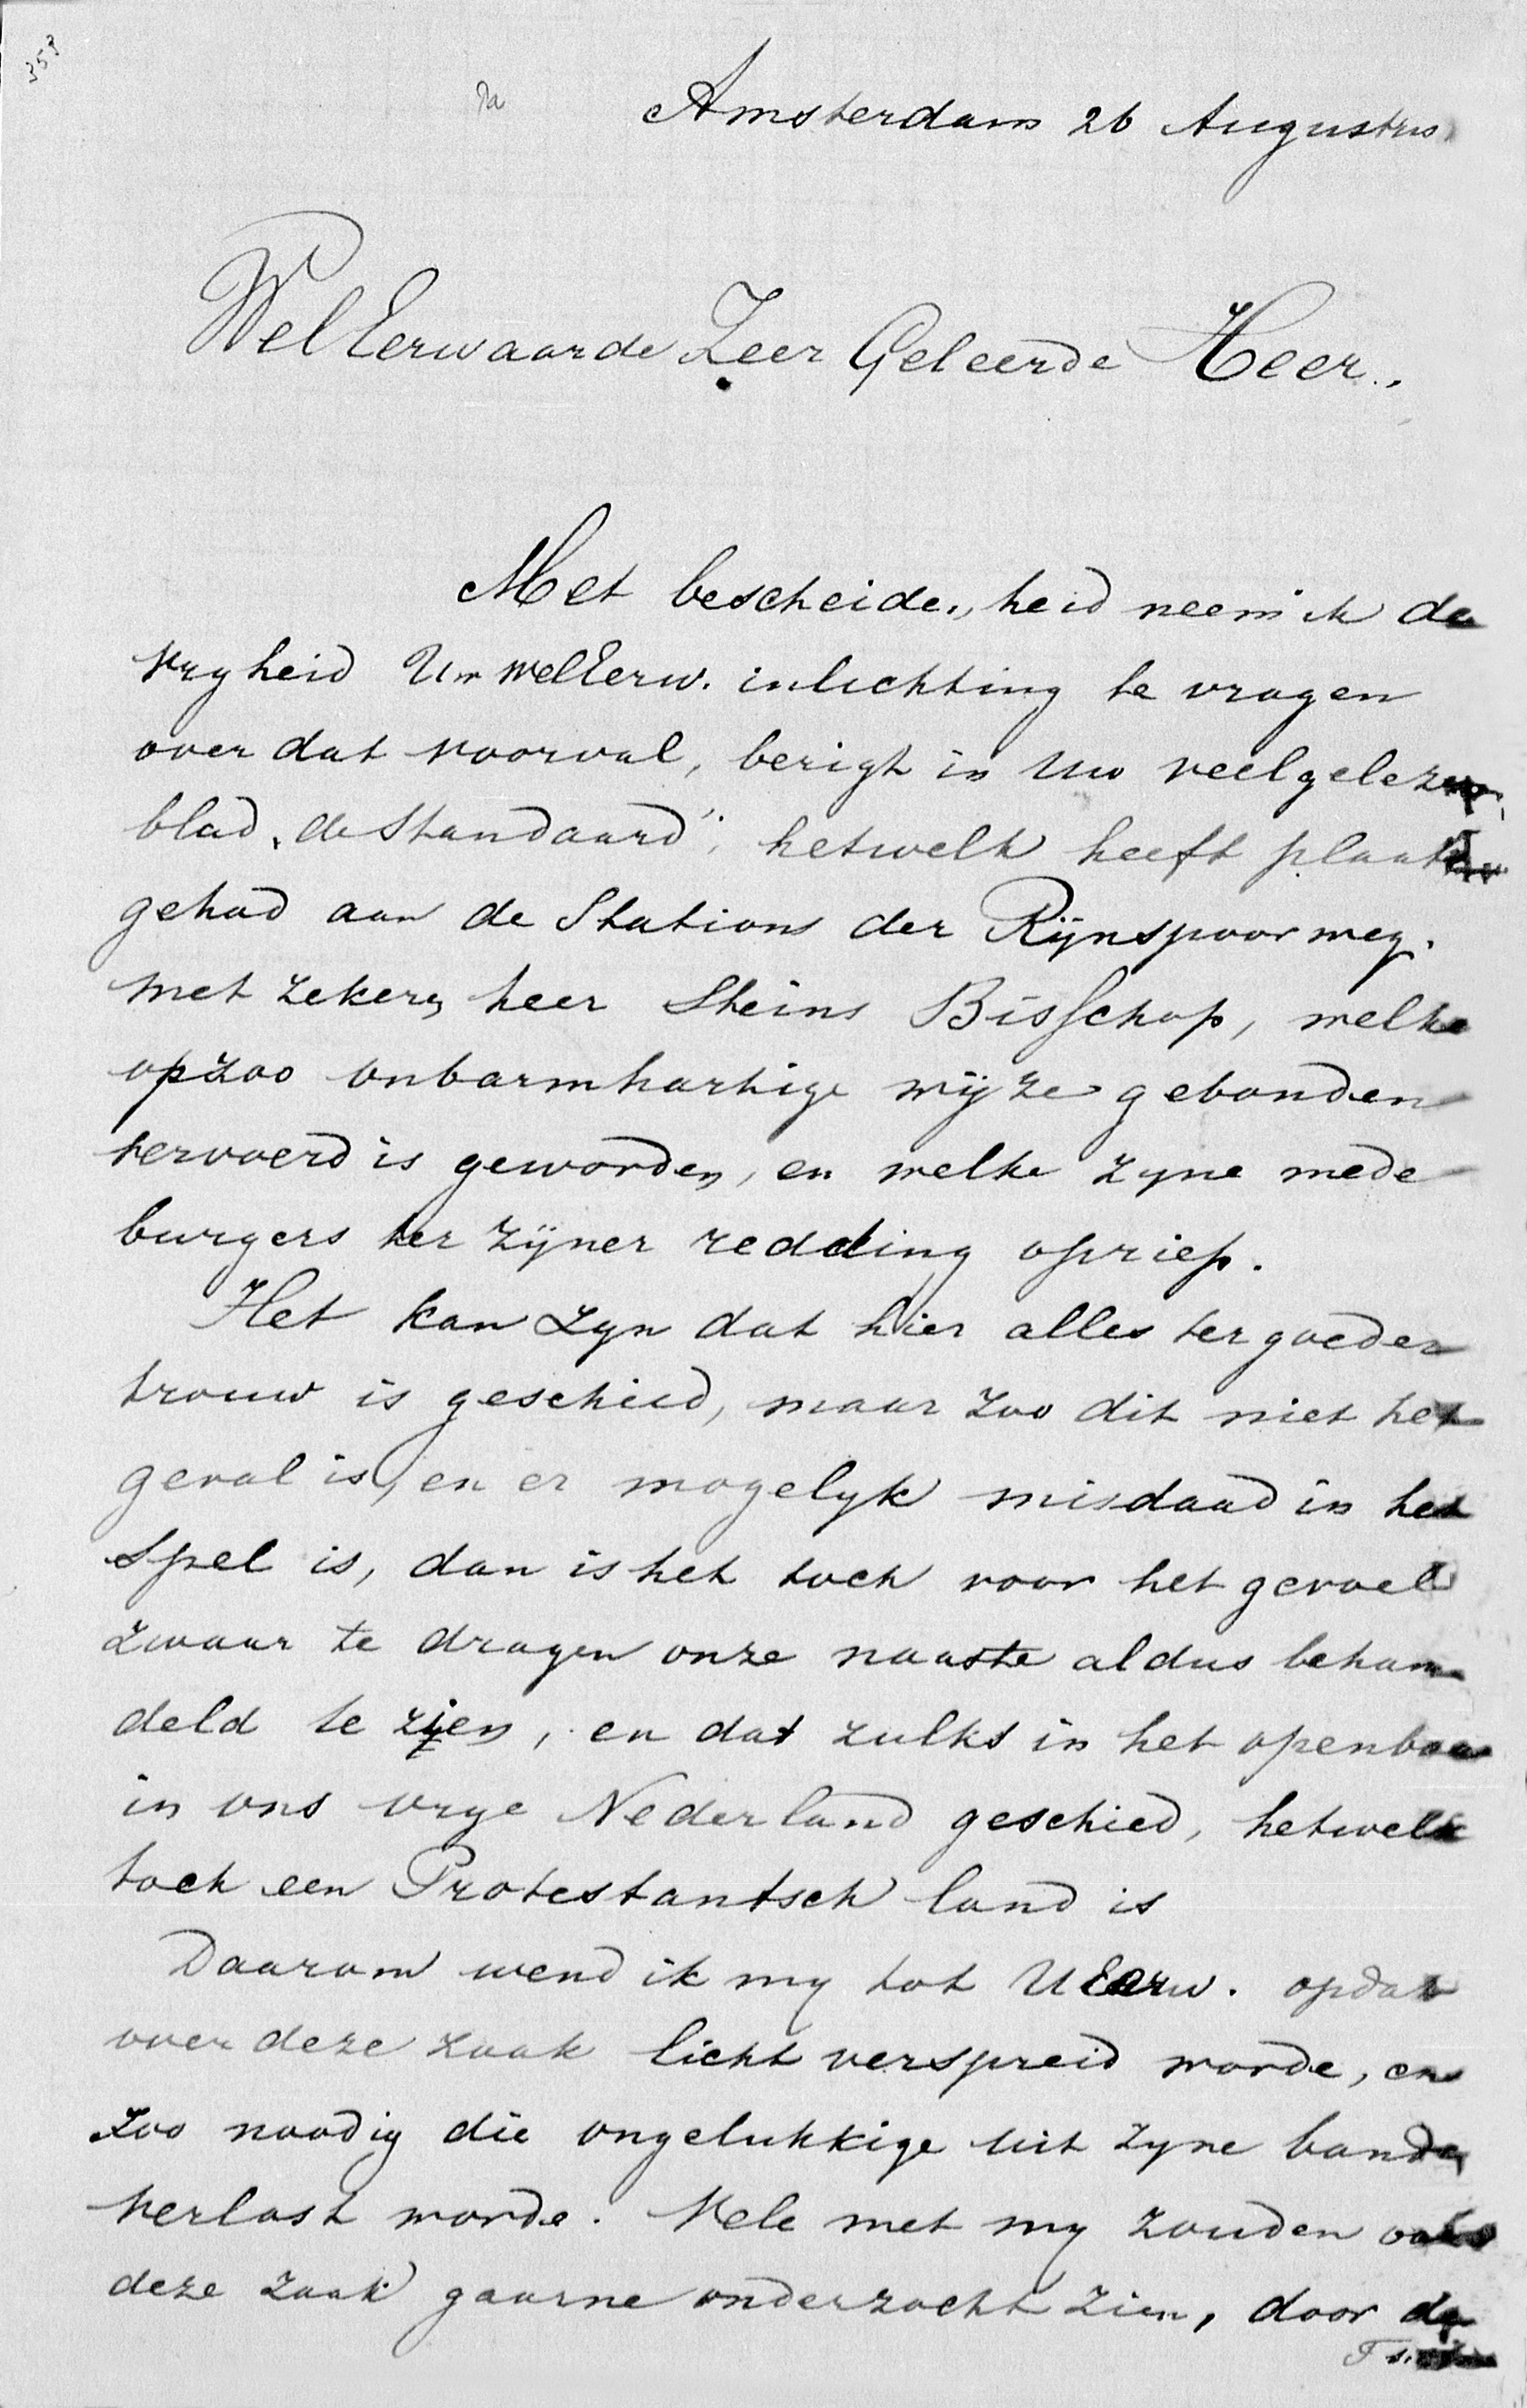 357
Amsterdam 26 Augustus
WelEerwaarde Zeer Geleerde Heer.,
Met bescheiden,heid neem ik de
vryheid Uw WelEerw. inlichting te vragen
over dat voorval, berigt in Uw veelgelezen
blad „de Standaard", hetwelk heeft plaats
gehad aan de Stations der Rijnspoorweg.
met zekeren heer Steins Bisschop, welke
op zoo onbarmhartige wijze gebonden
vervoerd is geworden, en welke zyne mede
burgers ter zijner redding opriep.
Het kan zyn dat hier alles ter goeder
trouw is geschied, maar zoo dit niet het
geval is, en er mogelyk misdaad in het
spel is, dan is het toch voor het gevoel
zwaar te dragen onze naaste aldus behan
deld te zien, en dat zulks in het openbaar
in ons vrye Nederland geschied, hetwelk
toch een Protestantsch land is
Daarom wend ik my tot UEerw. opdat
over deze zaak licht verspreid worde, en
zoo noodig die ongelukkige uit zyne banden
verlost worde. Vele met my zouden
deze zaak gaarne onderzocht zien, door de